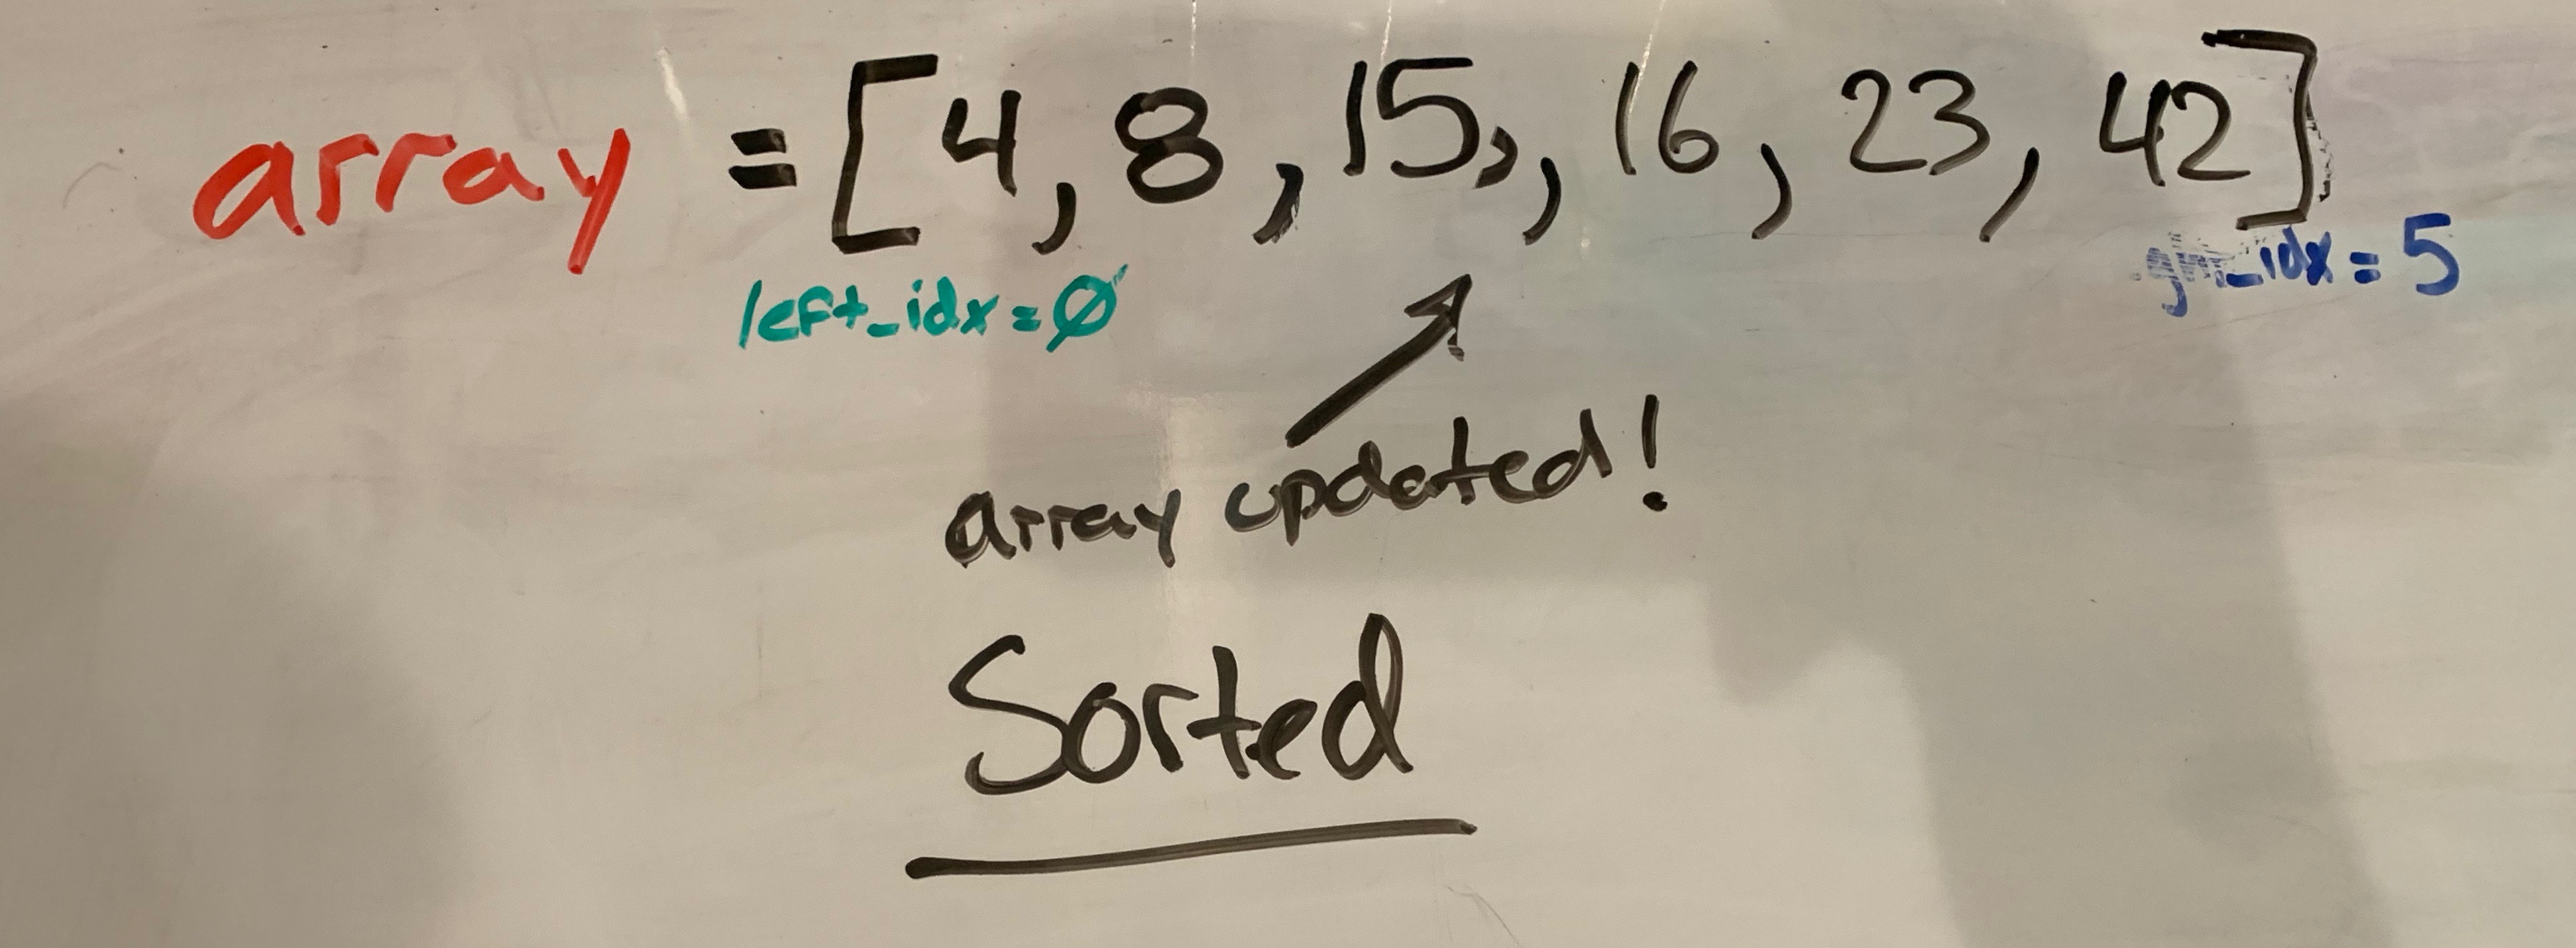 array = [4, 8, 15,, 16, 23, 42]
left_idx=0
_idx = 5
array updated!
Sorted